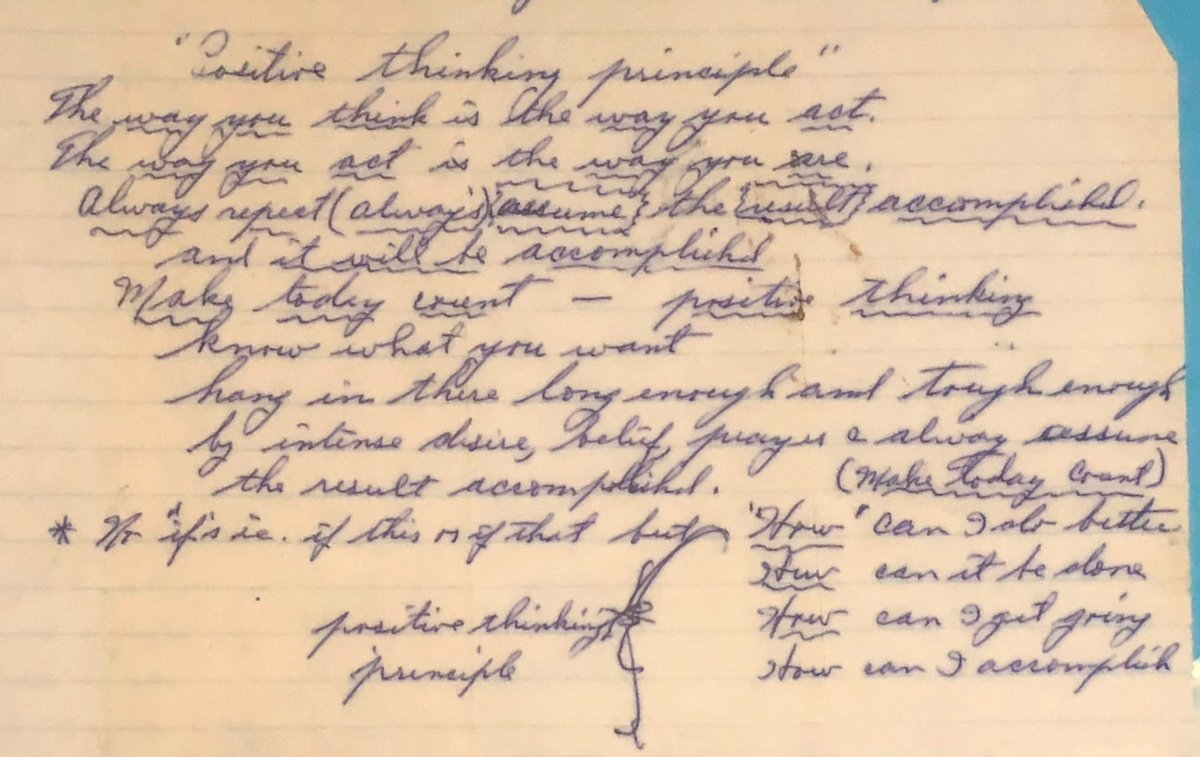 "Positive thinking principle"
The way you think is the way you act.
The way you act is the way you are.
Always repeat (always) {assume} the {result} accomplished.
and it will be accomplished
Make today count — positive thinking
know what you want
hang in there long enough and tough enough
by intense desire, belief, prayer & alway assume
the result accomplished.
(Make today count)
* No "if's ie. if this or if that but "How" can I do better
How can it be done
positive thinking How can I get going
principle How can I accomplish